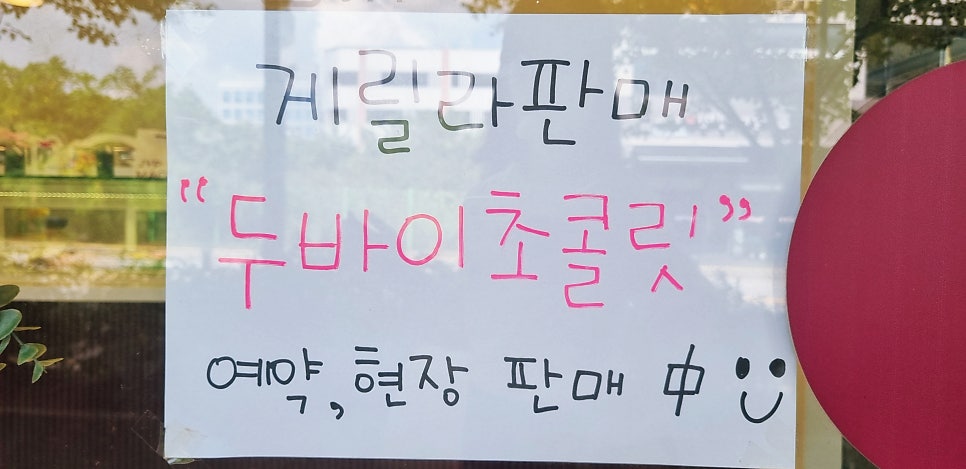 게릴라판매
"두바이초콜릿"
예약, 현장 판매 中